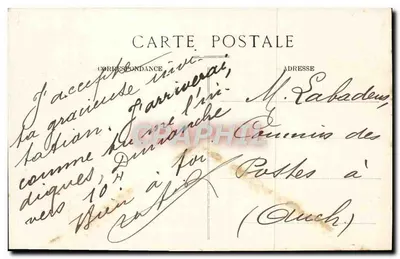 CARTE POSTALE
CORRESPONDANCE
ADRESSE
J'accepte
ta gracieuse invi-
tation. J'arriverai,
comme tu me l'in-
diques, Dimanche
vers 10 H
Bien à toi
M. Labadens,
Commis des
Postes à
(Auch)